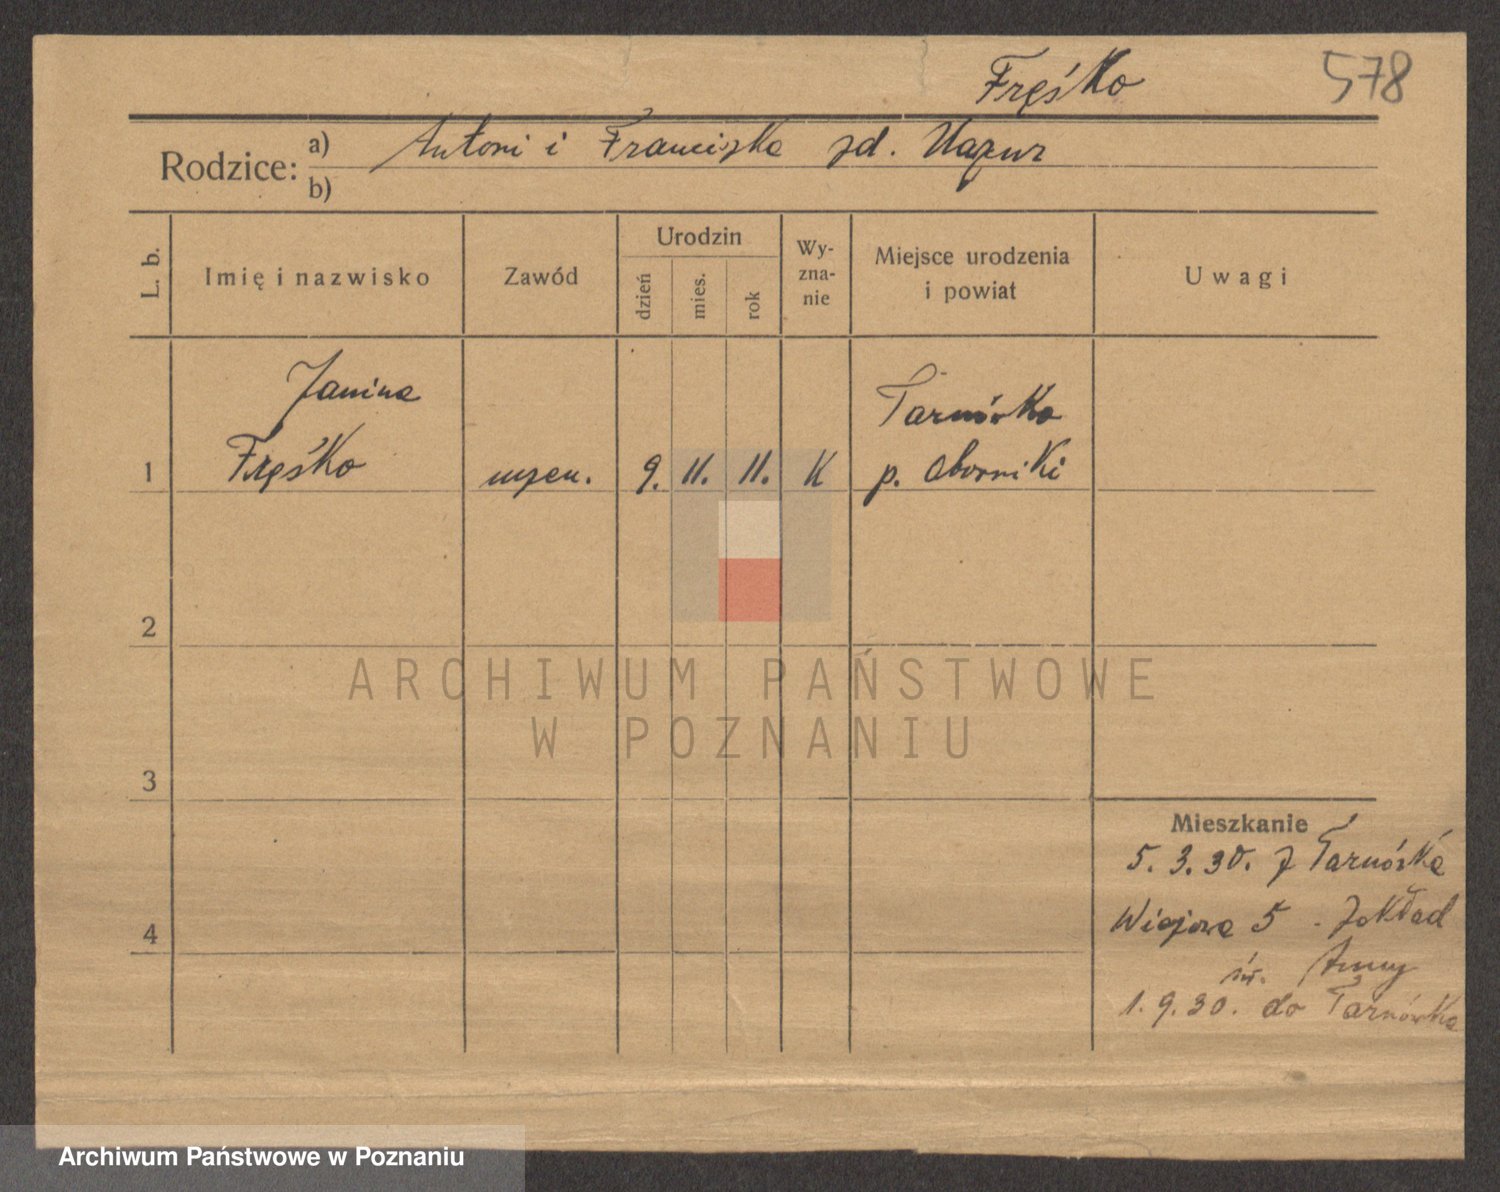 Fręśko 578
Rodzice: a) Antoni i Franciszka zd. Mazur
b)
L. b. Imię i nazwisko Zawód Urodzin dzień mies. rok Wy-zna-nie Miejsce urodzenia i powiat Uwagi
Janina Tarnówko
1 Fręśko uczen. 9. 11. 11. K p. Oborniki
2
ARCHIWUM PAŃSTWOWE
W POZNANIU
3
Mieszkanie
5. 3. 30. z Tarnówka
4 5 . Zakład
św. Anny
1. 9. 30. do Tarnówka
Archiwum Państwowe w Poznaniu